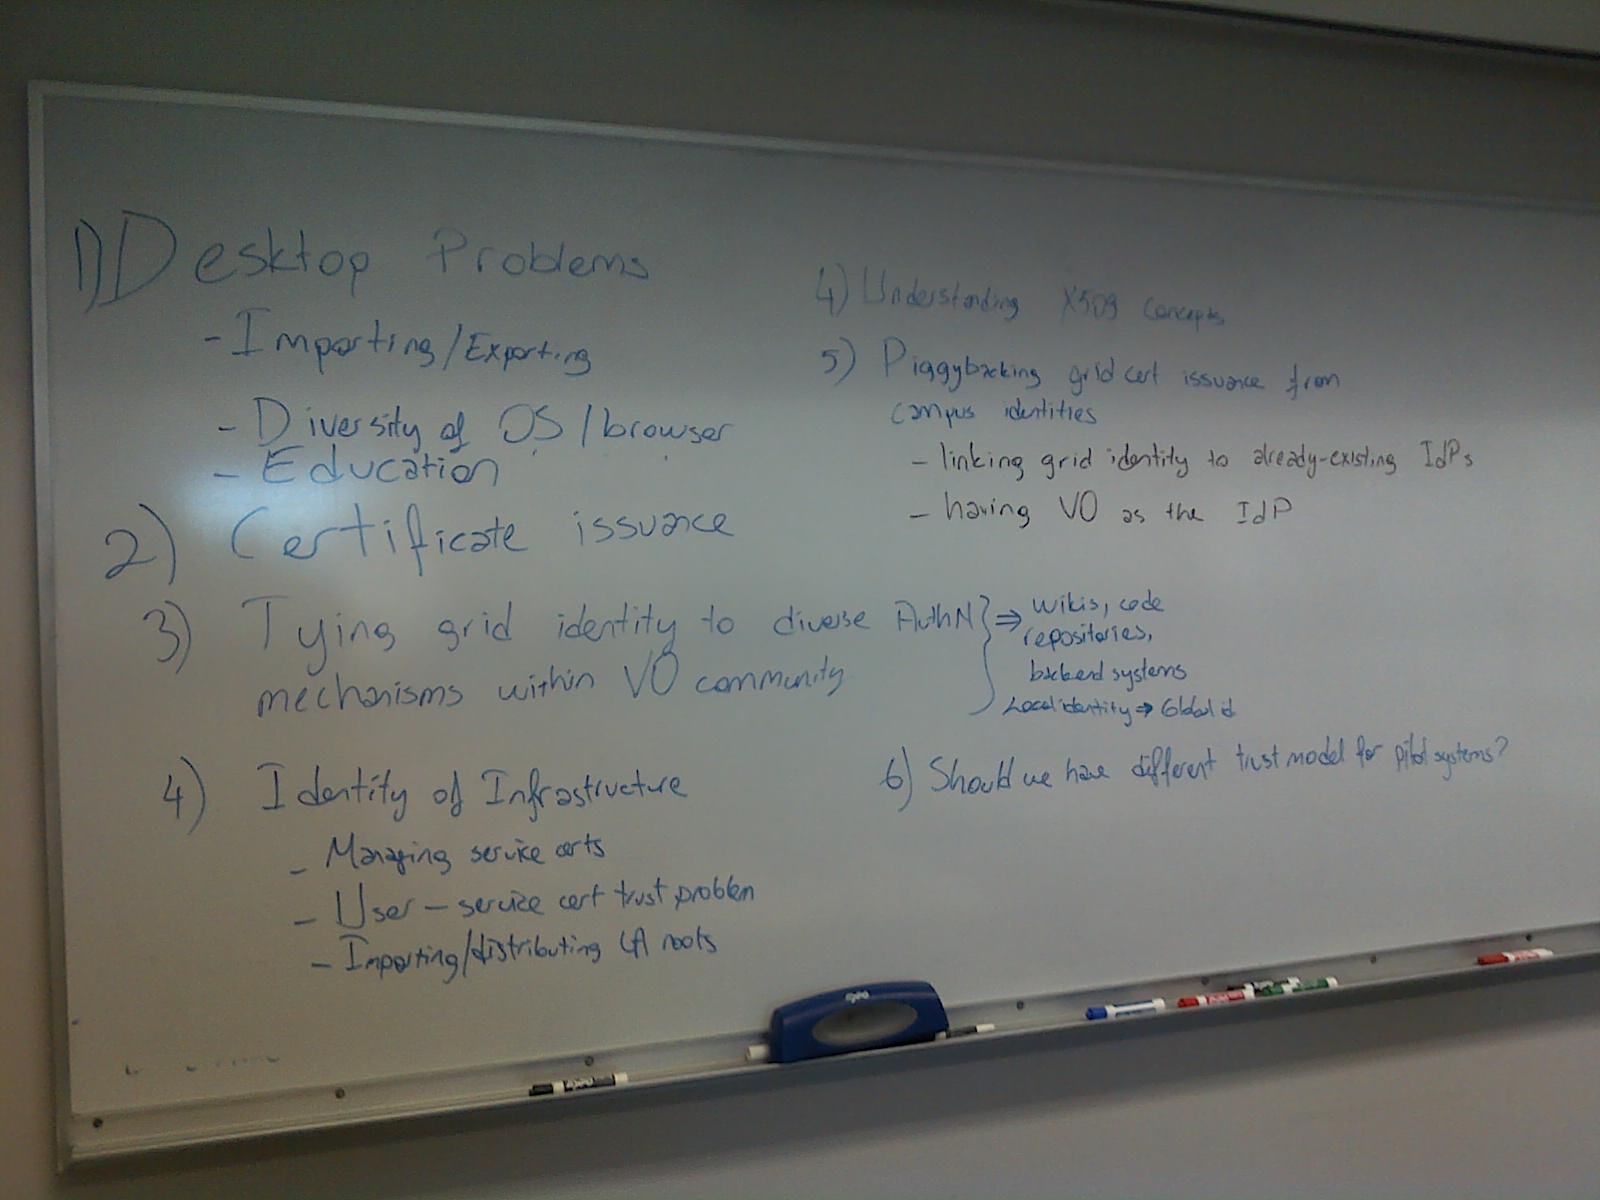 1) Desktop Problems
- Importing/Exporting
- Diversity of OS/browser
- Education
2) Certificate issuance
3) Tying grid identity to diverse AuthN } ⇒ wikis, code
repositories,
mechanisms within VO community
backend systems
Local identity ⇒ Global id
4) Identity of Infrastructure
- Managing service certs
- User - service cert trust problem
- Importing/distributing CA roots
4) Understanding X509 concepts
5) Piggybacking grid cert issuance from
campus identities
- linking grid identity to already-existing IdPs
- having VO as the IdP
6) Should we have different trust model for pilot systems?
expo